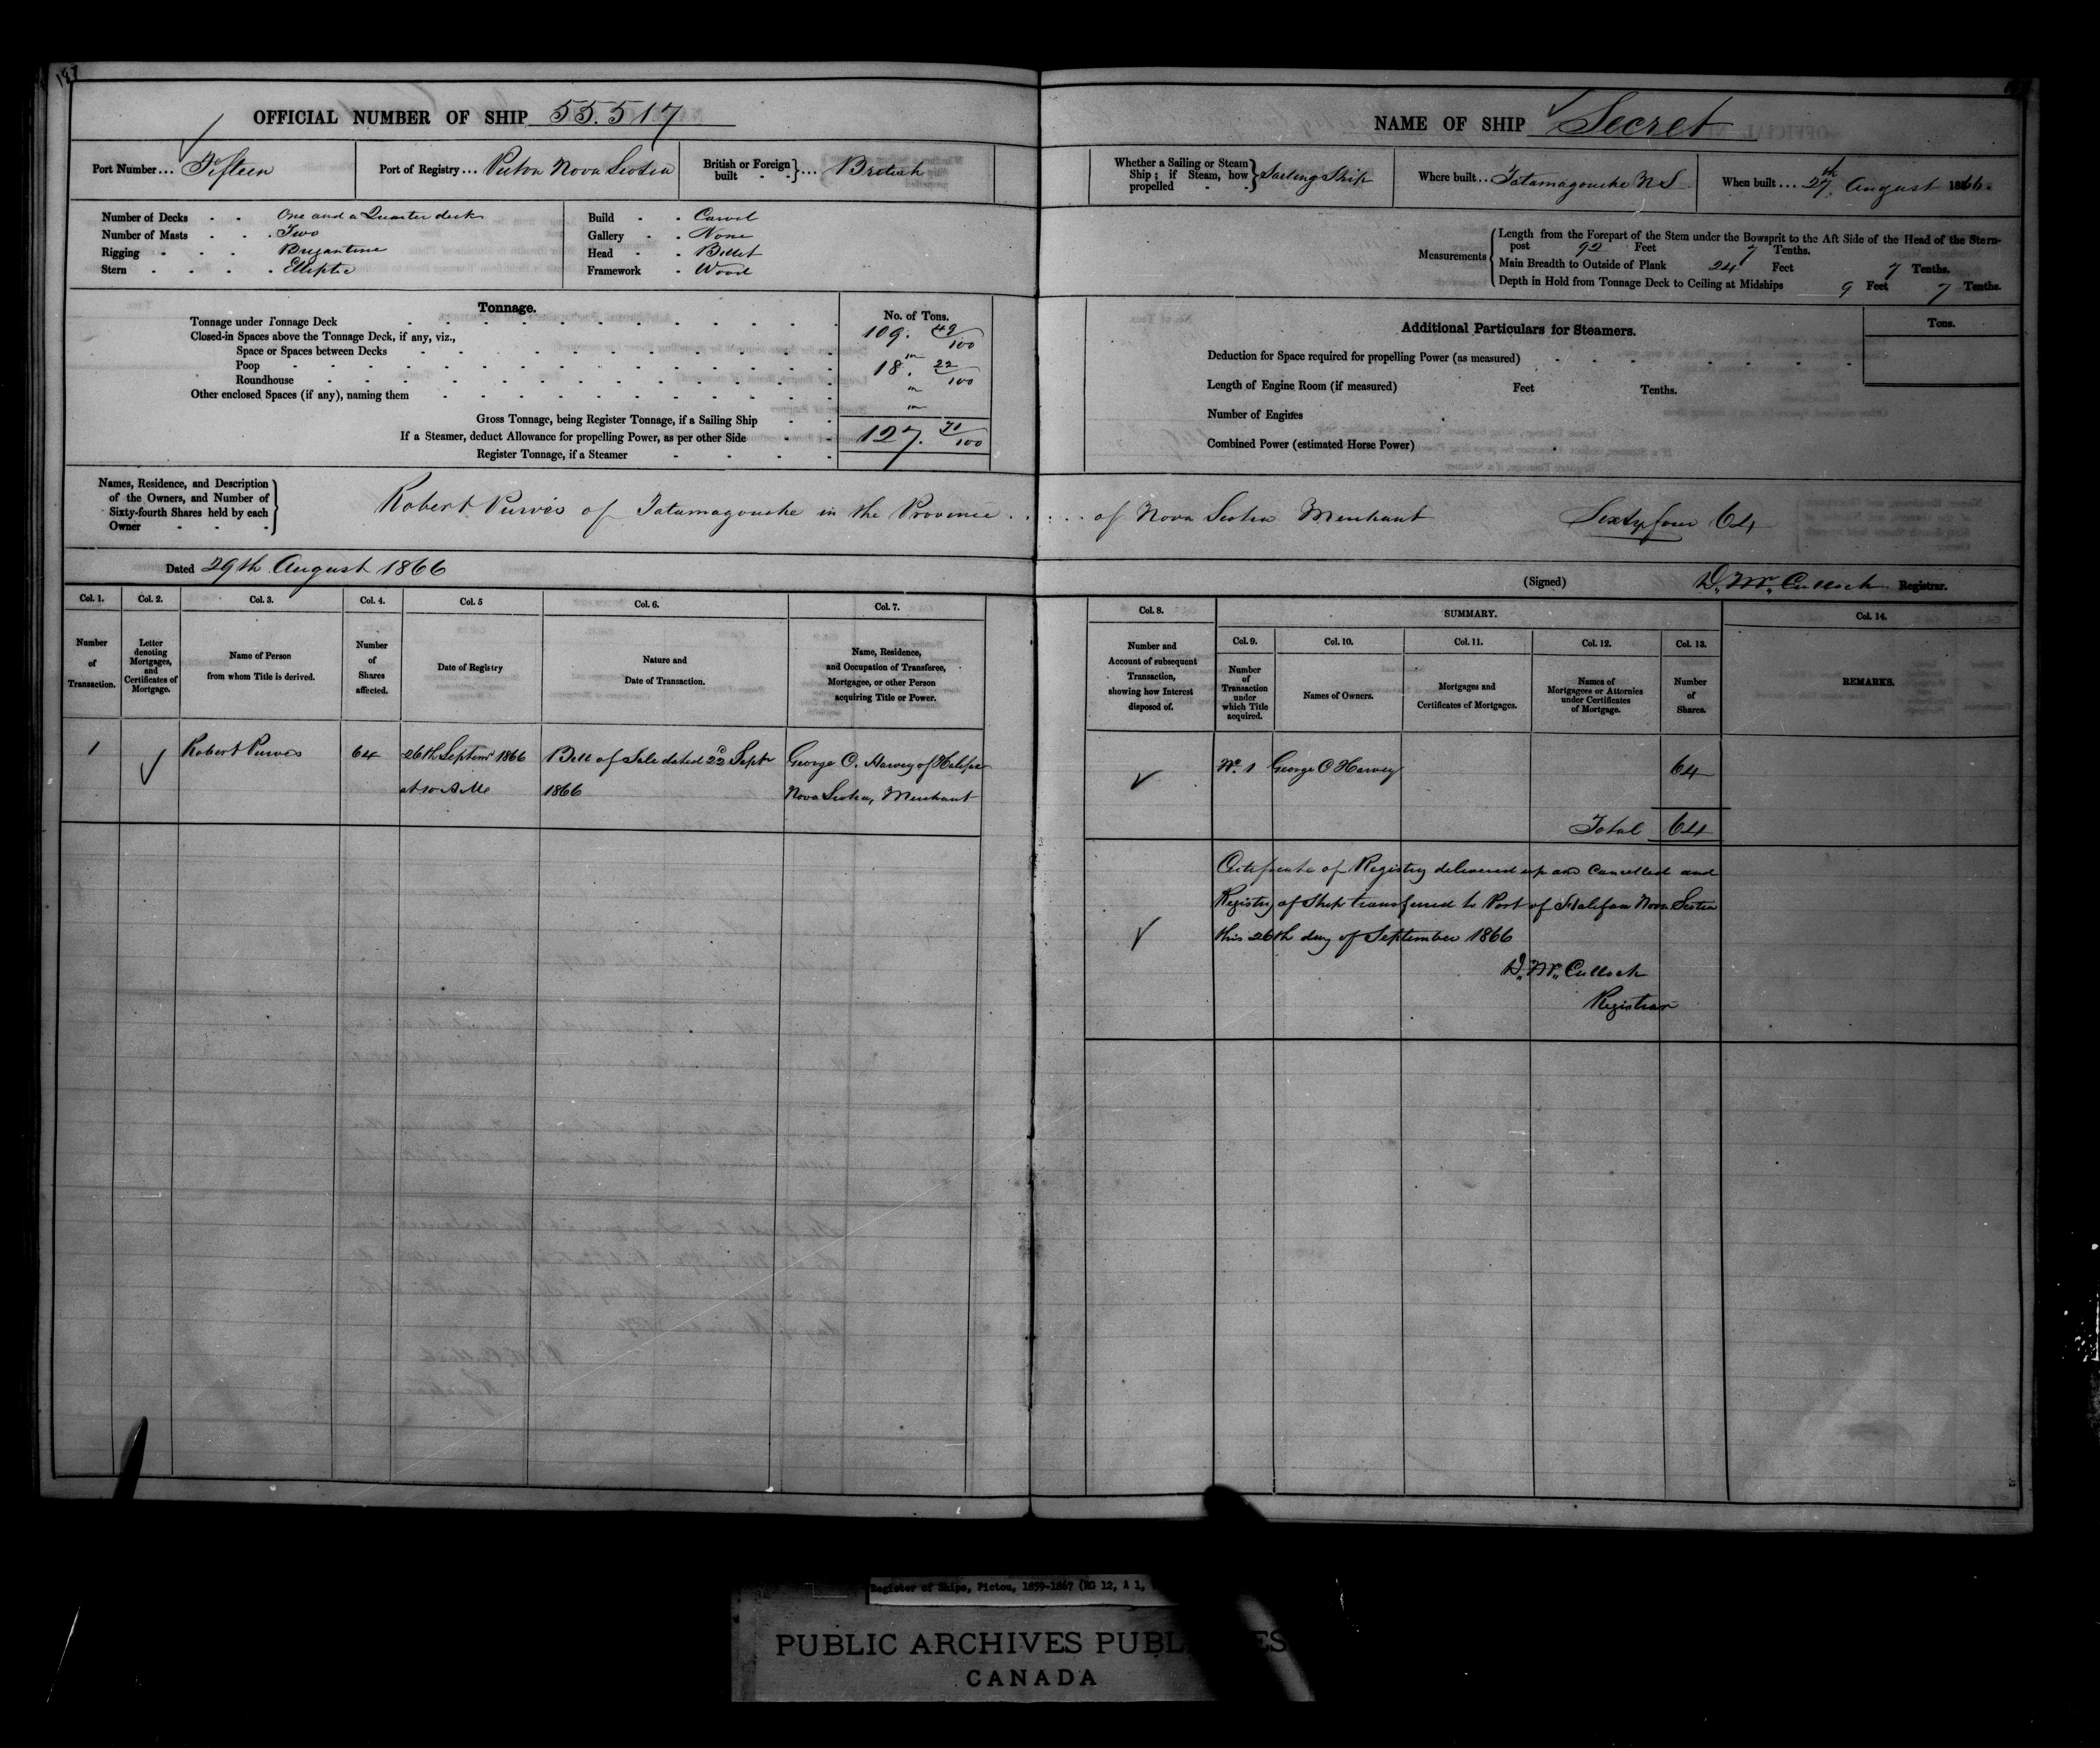 187
OFFICIAL NUMBER OF SHIP 55.517
Port Number... Fifteen
Port of Registry... Pictou Nova Scotia
British or Foreign built - - } ... British
Number of Decks - - One and a Quarter deck
Number of Masts - - Two
Rigging - - - Brigantine
Stern - - - - Elliptic
Build - - Carvel
Gallery - - None
Head - - Billet
Framework - Wood
Tonnage.
No. of Tons.
Tonnage under Tonnage Deck 109. 49/100
Closed-in Spaces above the Tonnage Deck, if any, viz.,
Space or Spaces between Decks "
Poop 18. 22/100
Roundhouse "
Other enclosed Spaces (if any), naming them "
Gross Tonnage, being Register Tonnage, if a Sailing Ship
If a Steamer, deduct Allowance for propelling Power, as per other Side 127. 71/100
Register Tonnage, if a Steamer
NAME OF SHIP Secret
Whether a Sailing or Steam Ship; if Steam, how propelled } Sailing Ship
Where built... Tatamagouche N S
When built... 27th August 1866.
Measurements { Length from the Forepart of the Stem under the Bowsprit to the Aft Side of the Head of the Stern-
post 92 Feet 7 Tenths.
Main Breadth to Outside of Plank 24 Feet 7 Tenths.
Depth in Hold from Tonnage Deck to Ceiling at Midships 9 Feet 7 Tenths.
Additional Particulars for Steamers.
Tons.
Deduction for Space required for propelling Power (as measured)
Length of Engine Room (if measured) Feet Tenths.
Number of Engines
Combined Power (estimated Horse Power)
Names, Residence, and Description of the Owners, and Number of Sixty-fourth Shares held by each Owner }
Robert Purvis of Tatamagouche in the Province ...... of Nova Scotia Merchant Sixty four 64
Dated 29th August 1866
(Signed) D. McCulloch Registrar.
Col. 1. Col. 2. Col. 3. Col. 4. Col. 5 Col. 6. Col. 7.
Number of Transaction.
Letter denoting Mortgages, and Certificates of Mortgage.
Name of Person from whom Title is derived.
Number of Shares affected.
Date of Registry
Nature and Date of Transaction.
Name, Residence, and Occupation of Transferee, Mortgagee, or other Person acquiring Title or Power.
Col. 8.
Number and Account of subsequent Transaction, showing how Interest disposed of.
SUMMARY.
Col. 9. Col. 10. Col. 11. Col. 12. Col. 13. Col. 14.
Number of Transaction under which Title acquired.
Names of Owners.
Mortgages and Certificates of Mortgages.
Names of Mortgagees or Attornies under Certificates of Mortgage.
Number of Shares.
REMARKS.
1 Robert Purves 64 26th Septemr 1866 Bill of Sale dated 22d Septr George C. Harvey of Halifax
at 10 A.M. 1866 Nova Scotia, Merchant
No. 1 George C Harvey 64
Total 64
Certificate of Registry delivered up and Cancelled and
Registry of Ship transferred to Port of Halifax Nova Scotia
this 26th day of September 1866
D. McCulloch
Registrar
Register of Ships, Pictou, 1859-1867 (RG 12, A 1,
PUBLIC ARCHIVES PUBL ES
CANADA